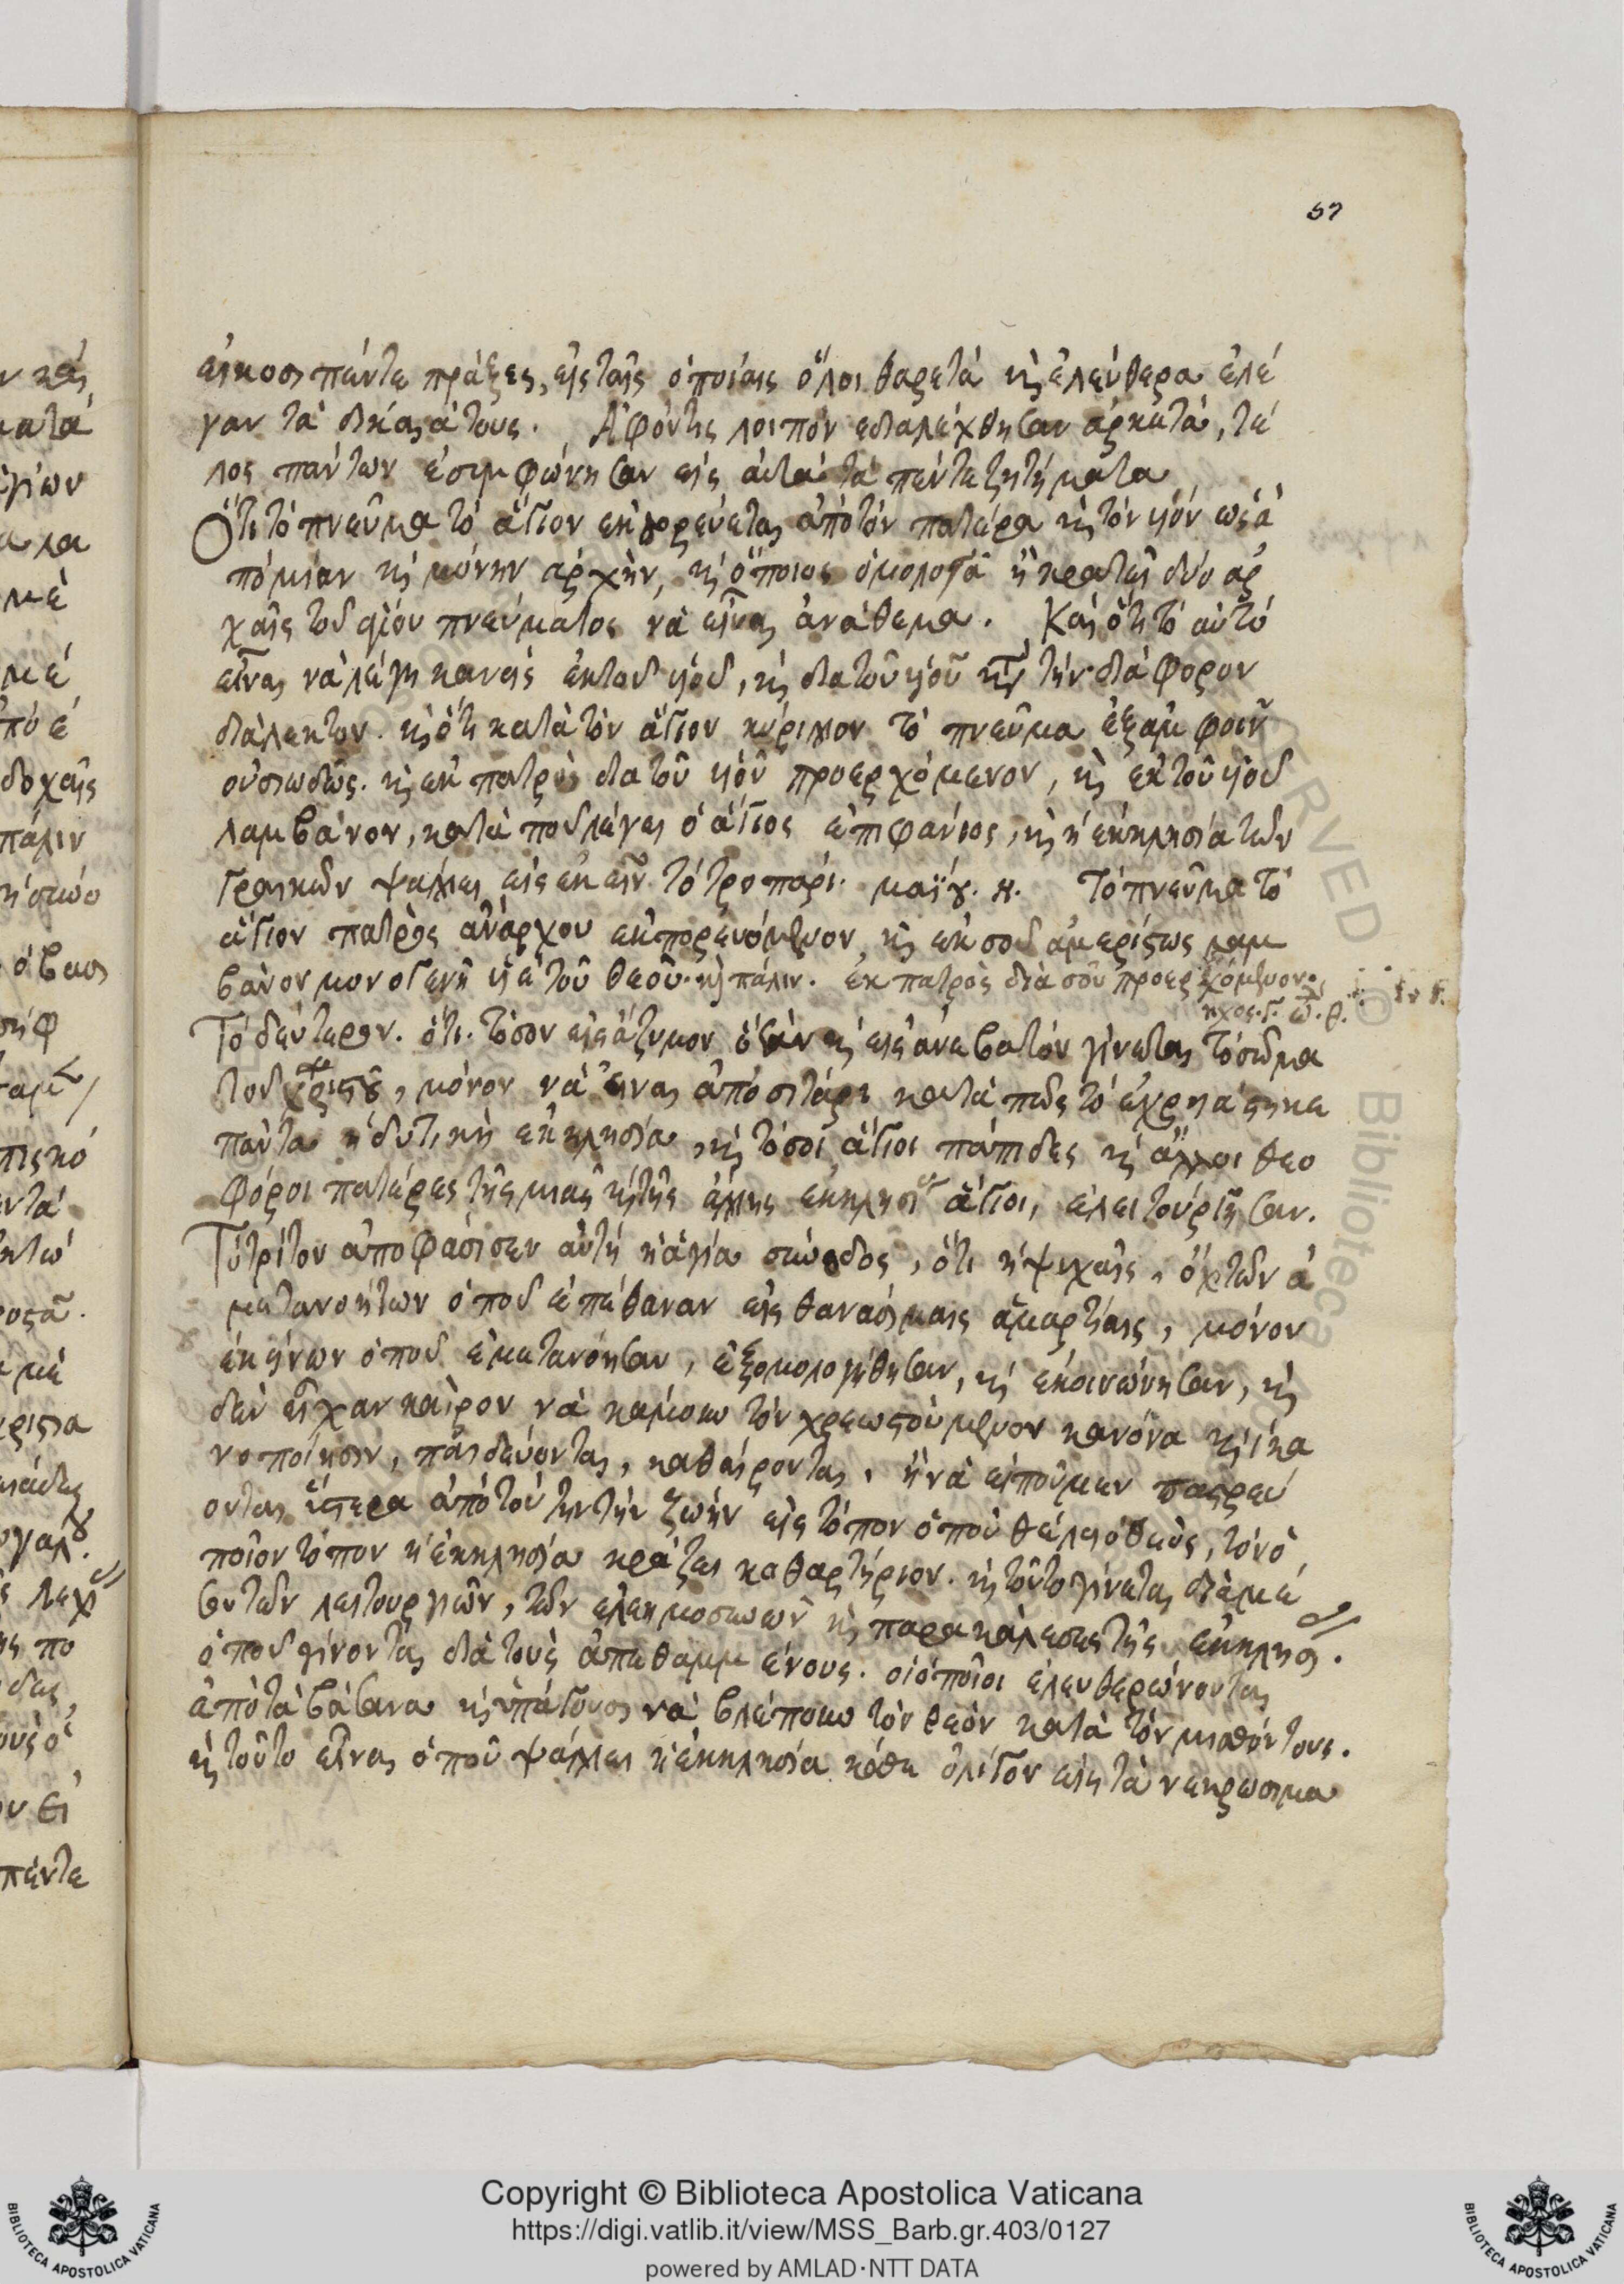 57
εἰκοσι πέντε πράξες, εἰς ταῖς ὁποίαις ὅλοι θαρετά κὶ ἐλεύθερα ἐλέ
γαν τὰ δικαιά τους. Ἀφόντις λοιπόν εδιαλέχθησαν ἀρκετά, τέ
λος πάντων ἐσιμφώνησαν εἰς αὐτά τά πέντε ζητήματα
Ὅτι τό πνεῦμα τό ἅγιον εκπορεύεται ἀπό τόν πατέρα κὶ τόν υἱόν ωσ ἀ
πό μίαν κὶ μόνην ἀρχὴν, κὶ ὅποιος ὁμολογᾶ ἢ κρατεῖ δύο ἀρ
χαῖς τοῦ ἁγίου πνεύματος νὰ εἶναι ἀνάθεμα. Καὶ ὅτι τὸ αὐτό
εἶναι νὰ λέγη κανείς ἐκ τοῦ υἱοῦ, κὶ δια τοῦ υἱοῦ τήν διάφορον
διάλεκτον. κὶ ὅτι κατὰ τὸν ἅγιον κύριλλον τὸ πνεῦμα ἐξ ἀμφοιν
οὐσιωδῶς. κὶ εκ πατρὸς δια τοῦ υἱοῦ προερχόμενον, κὶ ἐκ τοῦ υἱοῦ
λαμβάνον, κατὰ ποῦ λέγει ὁ ἅγιος ἐπιφάνιος, κὶ ἡ ἐκκλησία τῶν
γραικῶν ψάλλει εἰς ἐκεῖν τὸ τροπάρι. μαϊου. η. Τὸ πνεῦμα τὸ
ἅγιον πατρὸς ἀνάρχου εκπορευόμενον κὶ εκ σοῦ ἀμερίστως λαμ
βάνον μονογενῆ υἱέ τοῦ θεοῦ. κὶ πάλιν. ἐκ πατρὸς διὰ σοῦ προερχόμενον.
ηχος. γ. ὠ. θ.
Τὸ δεύτερον. ὅτι. τόσον εἰς ἄζυμον ὅσον κὶ εἰς ἀνεβατόν γίνεται τὸ σῶμα
τοῦ Χριστοῦ, μόνον νὰ εἶναι ἀπὸ σιτάρι κατὰ πῶς τὸ ἐχρηάστηκε
πάντα ἡ δυτικὴ ἐκκλησία, κὶ τόσοι ἅγιοι πάπιδες κὶ ἄλλοι θεο
φόροι πατέρες τῆς μιᾶς κὶ τῆς ἄλλης ἐκκλησίας ἅγιοι, ελειτούργησαν.
Τὸ τρίτον ἀποφάσισεν αὐτή ἡ ἁγία σύνοδος, ὅτι ἡ ψυχαῖς, ὄχι τῶν ἀ
μετανοήτων ὁποῦ ἐπέθαναν εἰς θανάσιμαις ἁμαρτίαις, μόνον
ἐκείνων ὁποῦ ἐμετανόησαν, ἐξομολογήθησαν, κὶ ἐκοινώνησαν, κὶ
δὲν εἶχαν καιρὸν νὰ κάμουν τὸν χρεωστούμενον κανόνα κὶ ἱκα
νοποίησιν, παιδεύονται, καθαίρονται, ἢ νὰ εἰποῦμεν παιρεύ
ονται ὕστερα ἀπὸ τούτην τὴν ζωὴν εἰς τόπον ὁποῦ θέλει ὁ θεὸς, τὸν ὁ
ποῖον τόπον ἡ ἐκκλησία κράζει καθαρτήριον. κὶ τοῦτο γίνεται διὰ μέ
σου τῶν λειτουργιῶν, τῶν ελεημοσυνῶν κὶ παρακάλεσες τῆς ἐκκλησ.
ὁποῦ γίνονται διὰ τοὺς ἀπεθαμμένους. οἱ ὁποῖοι ἐλευθερώνονται
ἀπὸ τὰ βάσανα κὶ ὑπάγουσι νὰ βλέπουν τὸν θεὸν κατὰ τὸν μισθόν τους.
κὶ τοῦτο εἶναι ὁποῦ ψάλλει ἡ ἐκκλησία κάθε ὀλίγον εἰς τὰ νεκρώσιμα
Copyright © Biblioteca Apostolica Vaticana
https://digi.vatlib.it/view/MSS_Barb.gr.403/0127
powered by AMLAD·NTT DATA
BIBLIOTECA APOSTOLICA VATICANA
BIBLIOTECA APOSTOLICA VATICANA